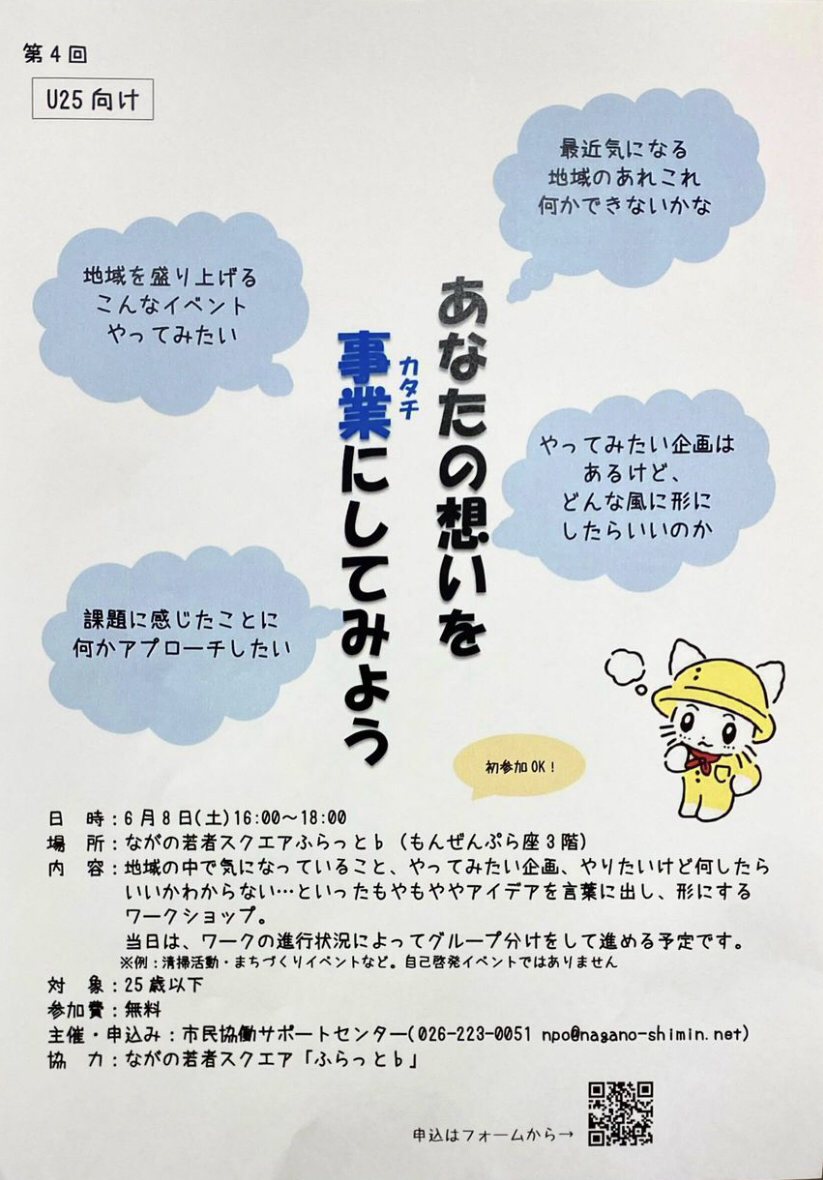 第4回
U25向け
最近気になる
地域のあれこれ
何かできないかな
地域を盛り上げる
こんなイベント
やってみたい
あなたの想いを
カタチ
事業にしてみよう
やってみたい企画は
あるけど、
どんな風に形に
したらいいのか
課題に感じたことに
何かアプローチしたい
初参加OK!
日 時:6月8日(土)16:00~18:00
場 所:ながの若者スクエアふらっと♭(もんぜんぷら座3階)
内 容:地域の中で気になっていること、やってみたい企画、やりたいけど何したら
いいかわからない…といったもやもややアイデアを言葉に出し、形にする
ワークショップ。
当日は、ワークの進行状況によってグループ分けをして進める予定です。
※例:清掃活動・まちづくりイベントなど。自己啓発イベントではありません
対 象:25歳以下
参加費:無料
主催・申込み:市民協働サポートセンター(026-223-0051 npo@nagano-shimin.net)
協 力:ながの若者スクエア「ふらっと♭」
申込はフォームから→